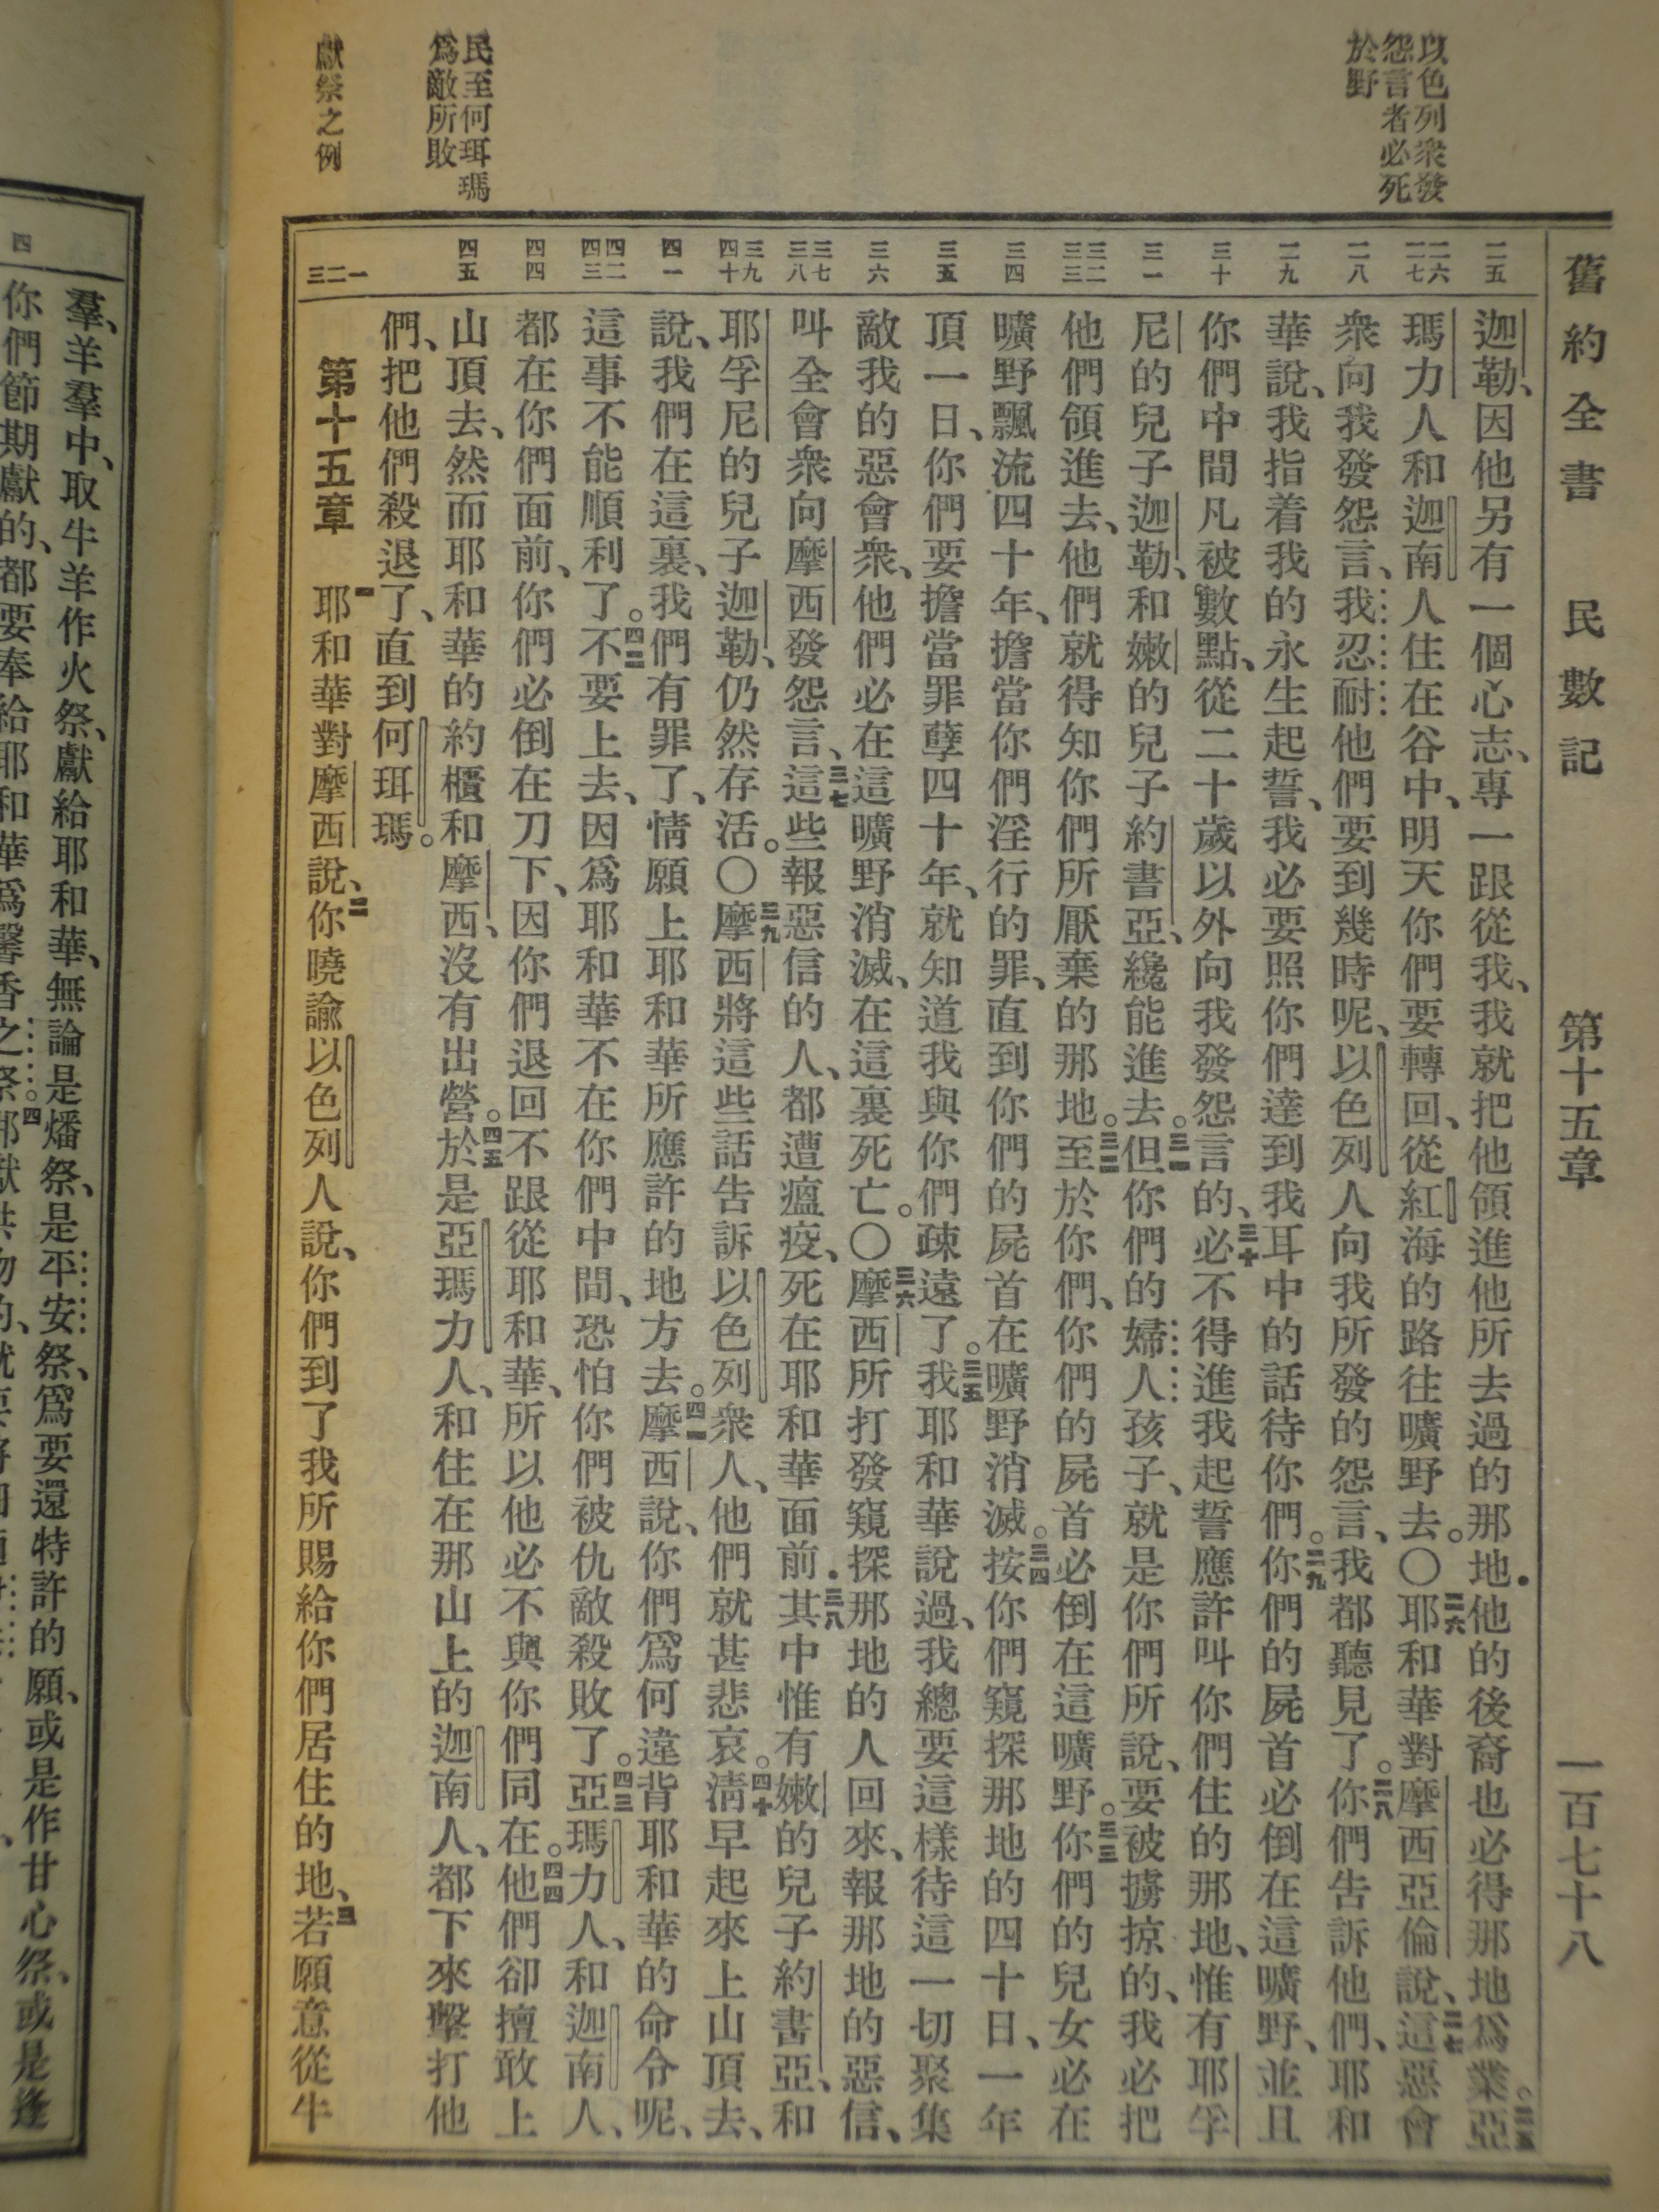 舊約全書 民數記 第十五章 一百七十八
以色列衆發
怨言者必死
於野
民至何珥瑪
爲敵所敗
獻祭之例
二五
二六 二七
二八
二九
三十
三一
三二 三三
三四
三五
三六
三七 三八
三九 四十
四一
四二 四三
四四
四五
一 二 三
迦勒、因他另有一個心志、專一跟從我、我就把他領進他所去過的那地.他的後裔也必得那地爲業。二五亞
瑪力人和迦南人住在谷中、明天你們要轉回、從紅海的路往曠野去。〇二六耶和華對摩西亞倫說、二七這惡會
衆向我發怨言、我忍耐他們要到幾時呢、以色列人向我所發的怨言、我都聽見了。二八你們告訴他們、耶和
華說、我指着我的永生起誓、我必要照你們達到我耳中的話待你們。二九你們的屍首必倒在這曠野、並且
你們中間凡被數點、從二十歲以外向我發怨言的、三十必不得進我起誓應許叫你們住的那地、惟有耶孚
尼的兒子迦勒、和嫩的兒子約書亞、纔能進去。三一但你們的婦人孩子、就是你們所說、要被擄掠的、我必把
他們領進去、他們就得知你們所厭棄的那地。三二至於你們、你們的屍首必倒在這曠野。三三你們的兒女必在
曠野飄流四十年、擔當你們淫行的罪、直到你們的屍首在曠野消滅。三四按你們窺探那地的四十日、一年
頂一日、你們要擔當罪孽四十年、就知道我與你們疎遠了。三五我耶和華說過、我總要這樣待這一切聚集
敵我的惡會衆、他們必在這曠野消滅、在這裏死亡。〇三六摩西所打發窺探那地的人回來、報那地的惡信、
叫全會衆向摩西發怨言、三七這些報惡信的人、都遭瘟疫、死在耶和華面前.三八其中惟有嫩的兒子約書亞、和
耶孚尼的兒子迦勒、仍然存活。〇三九摩西將這些話告訴以色列衆人、他們就甚悲哀。四十淸早起來上山頂去、
說、我們在這裏、我們有罪了、情願上耶和華所應許的地方去。四一摩西說、你們爲何違背耶和華的命令呢、
這事不能順利了。四二不要上去、因爲耶和華不在你們中間、恐怕你們被仇敵殺敗了。四三亞瑪力人、和迦南人、
都在你們面前、你們必倒在刀下、因你們退回不跟從耶和華、所以他必不與你們同在。四四他們卻擅敢上
山頂去、然而耶和華的約櫃和摩西、沒有出營。四五於是亞瑪力人、和住在那山上的迦南人、都下來擊打他
們、把他們殺退了、直到何珥瑪。
第十五章 一耶和華對摩西說、二你曉諭以色列人說、你們到了我所賜給你們居住的地、三若願意從牛
四
羣、羊羣中、取牛羊作火祭、獻給耶和華、無論是燔祭、是平安祭、爲要還特許的願、或是作甘心祭、或是逢
你們節期獻的、都要奉給耶和華爲馨香之祭。四